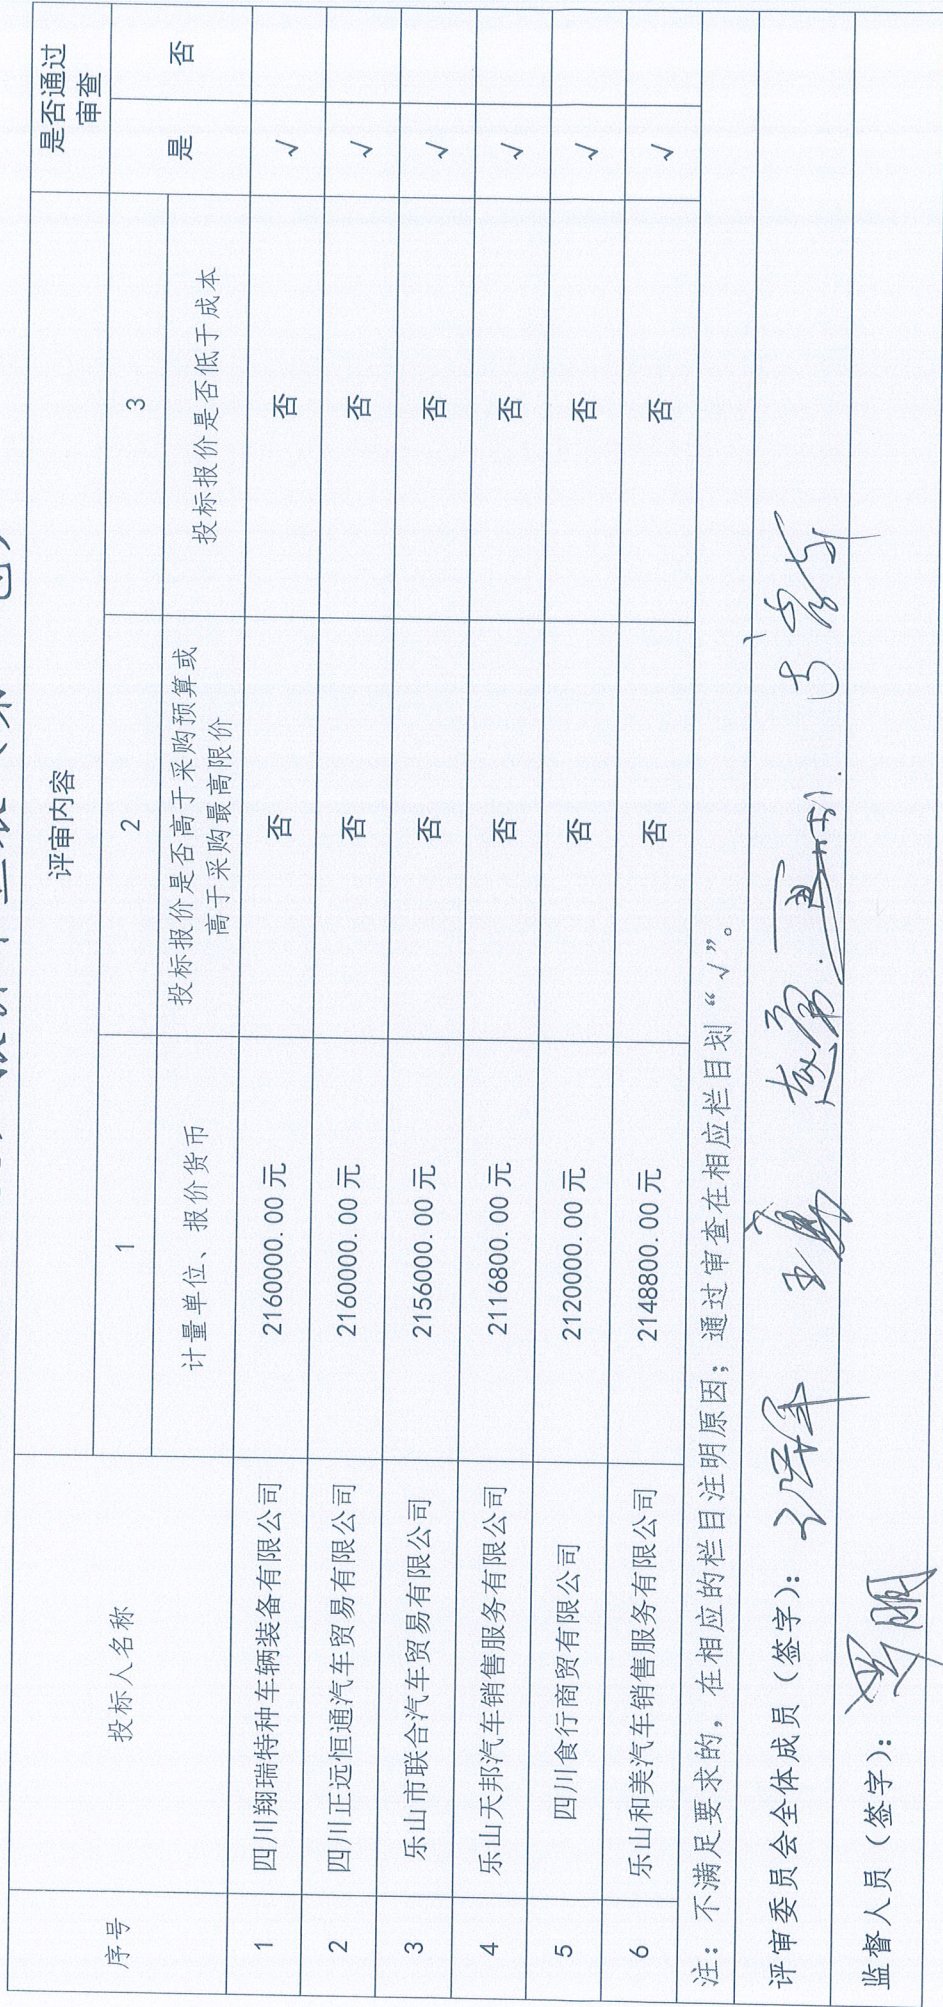 评审内容
是否通过
审查
序号
投标人名称
1
2
3
是
否
计量单位、报价货币
投标报价是否高于采购预算或
高于采购最高限价
投标报价是否低于成本
1 四川翔瑞特种车辆装备有限公司 2160000.00元 否 否 √
2 四川正远恒通汽车贸易有限公司 2160000.00元 否 否 √
3 乐山市联合汽车贸易有限公司 2156000.00元 否 否 √
4 乐山天邦汽车销售服务有限公司 2116800.00元 否 否 √
5 四川食行商贸有限公司 2120000.00元 否 否 √
6 乐山和美汽车销售服务有限公司 2148800.00元 否 否 √
注：不满足要求的，在相应的栏目注明原因；通过审查在相应栏目划“√”。
评审委员会全体成员（签字）：
监督人员（签字）：